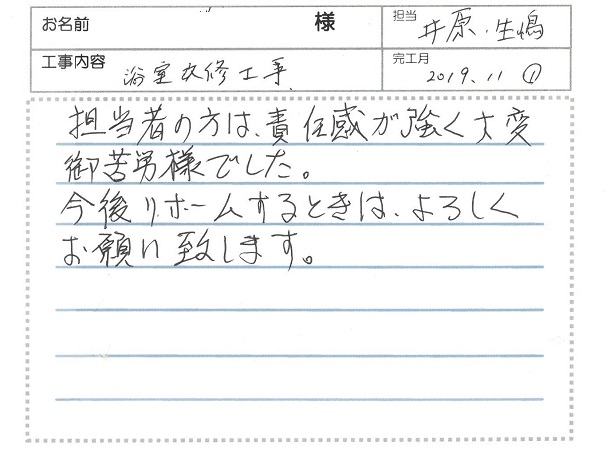 お名前 様 担当 井原・生嶋
工事内容 浴室改修工事 完工月 2019.11 ①
担当者の方は、責任感が強く大変
御苦労様でした。
今後リホームするときは、よろしく
お願い致します。